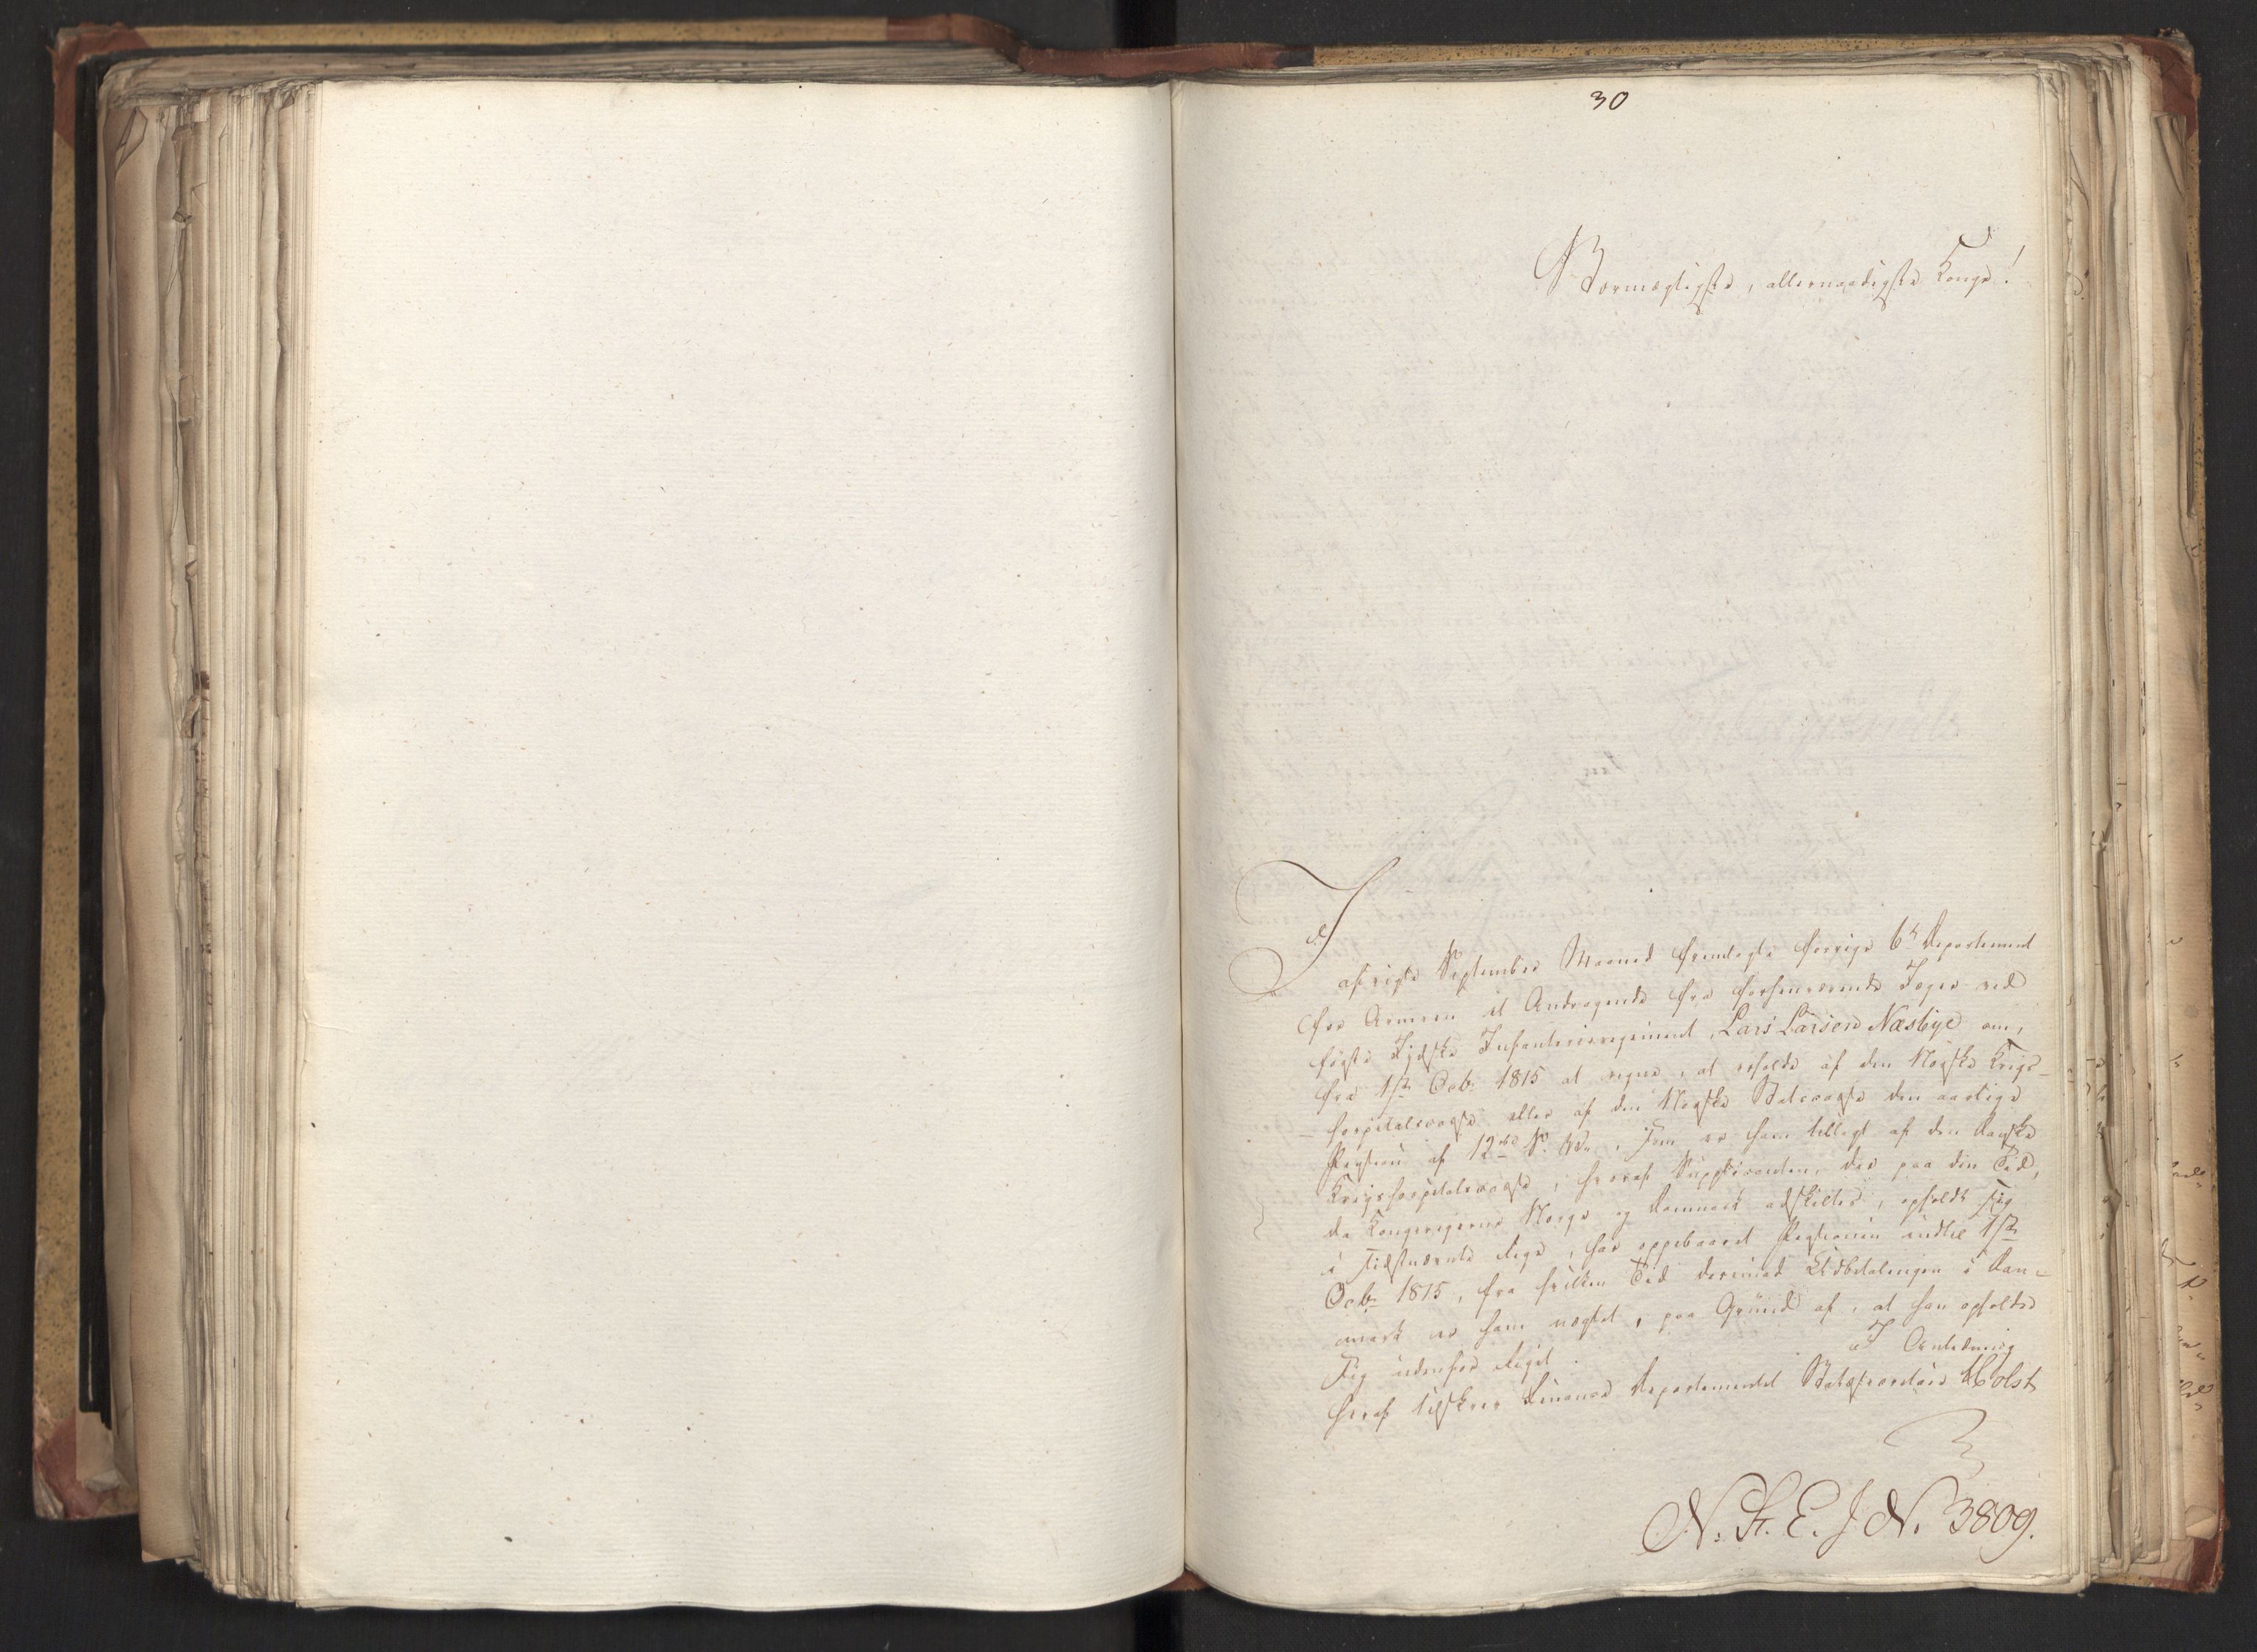 30
Stormægtigste, allernaadigste Konge!
I afvigte September Maaned fremlagte forrige 6te Departement
for Armeen et Andragende fra forhenværende Jæger ved
første Jydske Infanterieregiment, Lars Larsen Næsbye om,
fra 1ste Octbr 1815 at regne, at erholde af den Norske Krigs-
hospitalscasse eller af den Norske Statscasse den aarlige
Pension af 12 rbd S. V., som er ham tillagt af den danske
Krigshospitalscasse, hvoraf Supplicanten, der paa den Tid,
da Kongerigerne Norge og Danmark adskiltes, opholdt sig
i sidstnævnte Rige, har oppebaaret Pensionen indtil 1ste
Octbr 1815, fra hvilken Tid dermed Udbetalingen i Dan-
mark er ham nægtet, paa Grund af, at han opholder
sig udenfor Riget. I Anledning
heraf tilskrev Finance Departementet Statssecretair Holst
N. St. E. J. N. 3809.